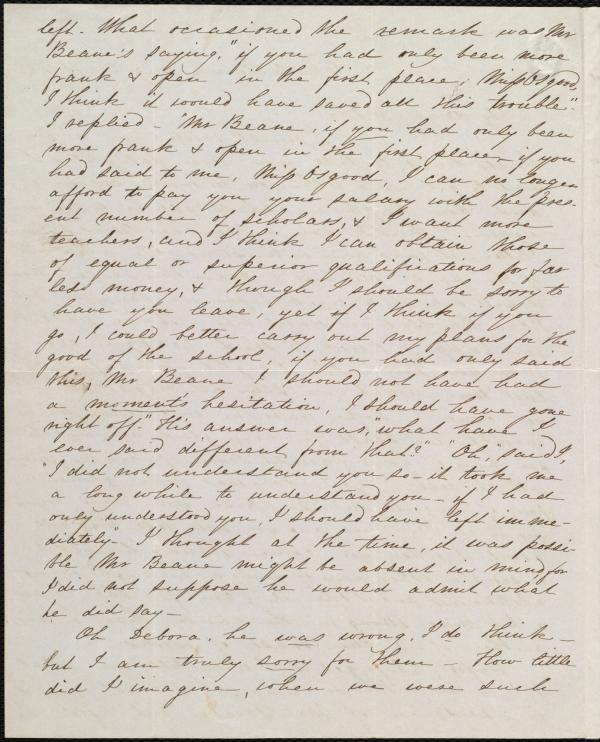 left. What occasioned the remark was Mr
Beane's saying, "if you had only been more
frank & open in the first place, Miss Osgood,
I think it would have saved all this trouble".
I replied - "Mr Beane, if you had only been
more frank & open in the first place, if you
had said to me, Miss Osgood, I can no longer
afford to pay you your salary with the pres-
ent number of scholars, & I want more
teachers, and I think I can obtain those
of equal or superior qualifications for far
less money, & though I should be sorry to
have you leave, yet if I think if you
go, I could better carry out my plans for the
good of the school, if you had only said
this, Mr Beane I should not have had
a moment's hesitation, I should have gone
right off." His answer was, "what have I
ever said different from that?" "Oh," said I,
"I did not understand you so - it took me
a long while to understand you - if I had
only understood you, I should have left imme-
diately". I thought at the time, it was possi-
ble Mr Beane might be absent in mind for
I did not suppose he would admit what
he did say -
Oh Debora, he was wrong, I do think -
but I am truly sorry for them - How little
did I imagine, when we were such